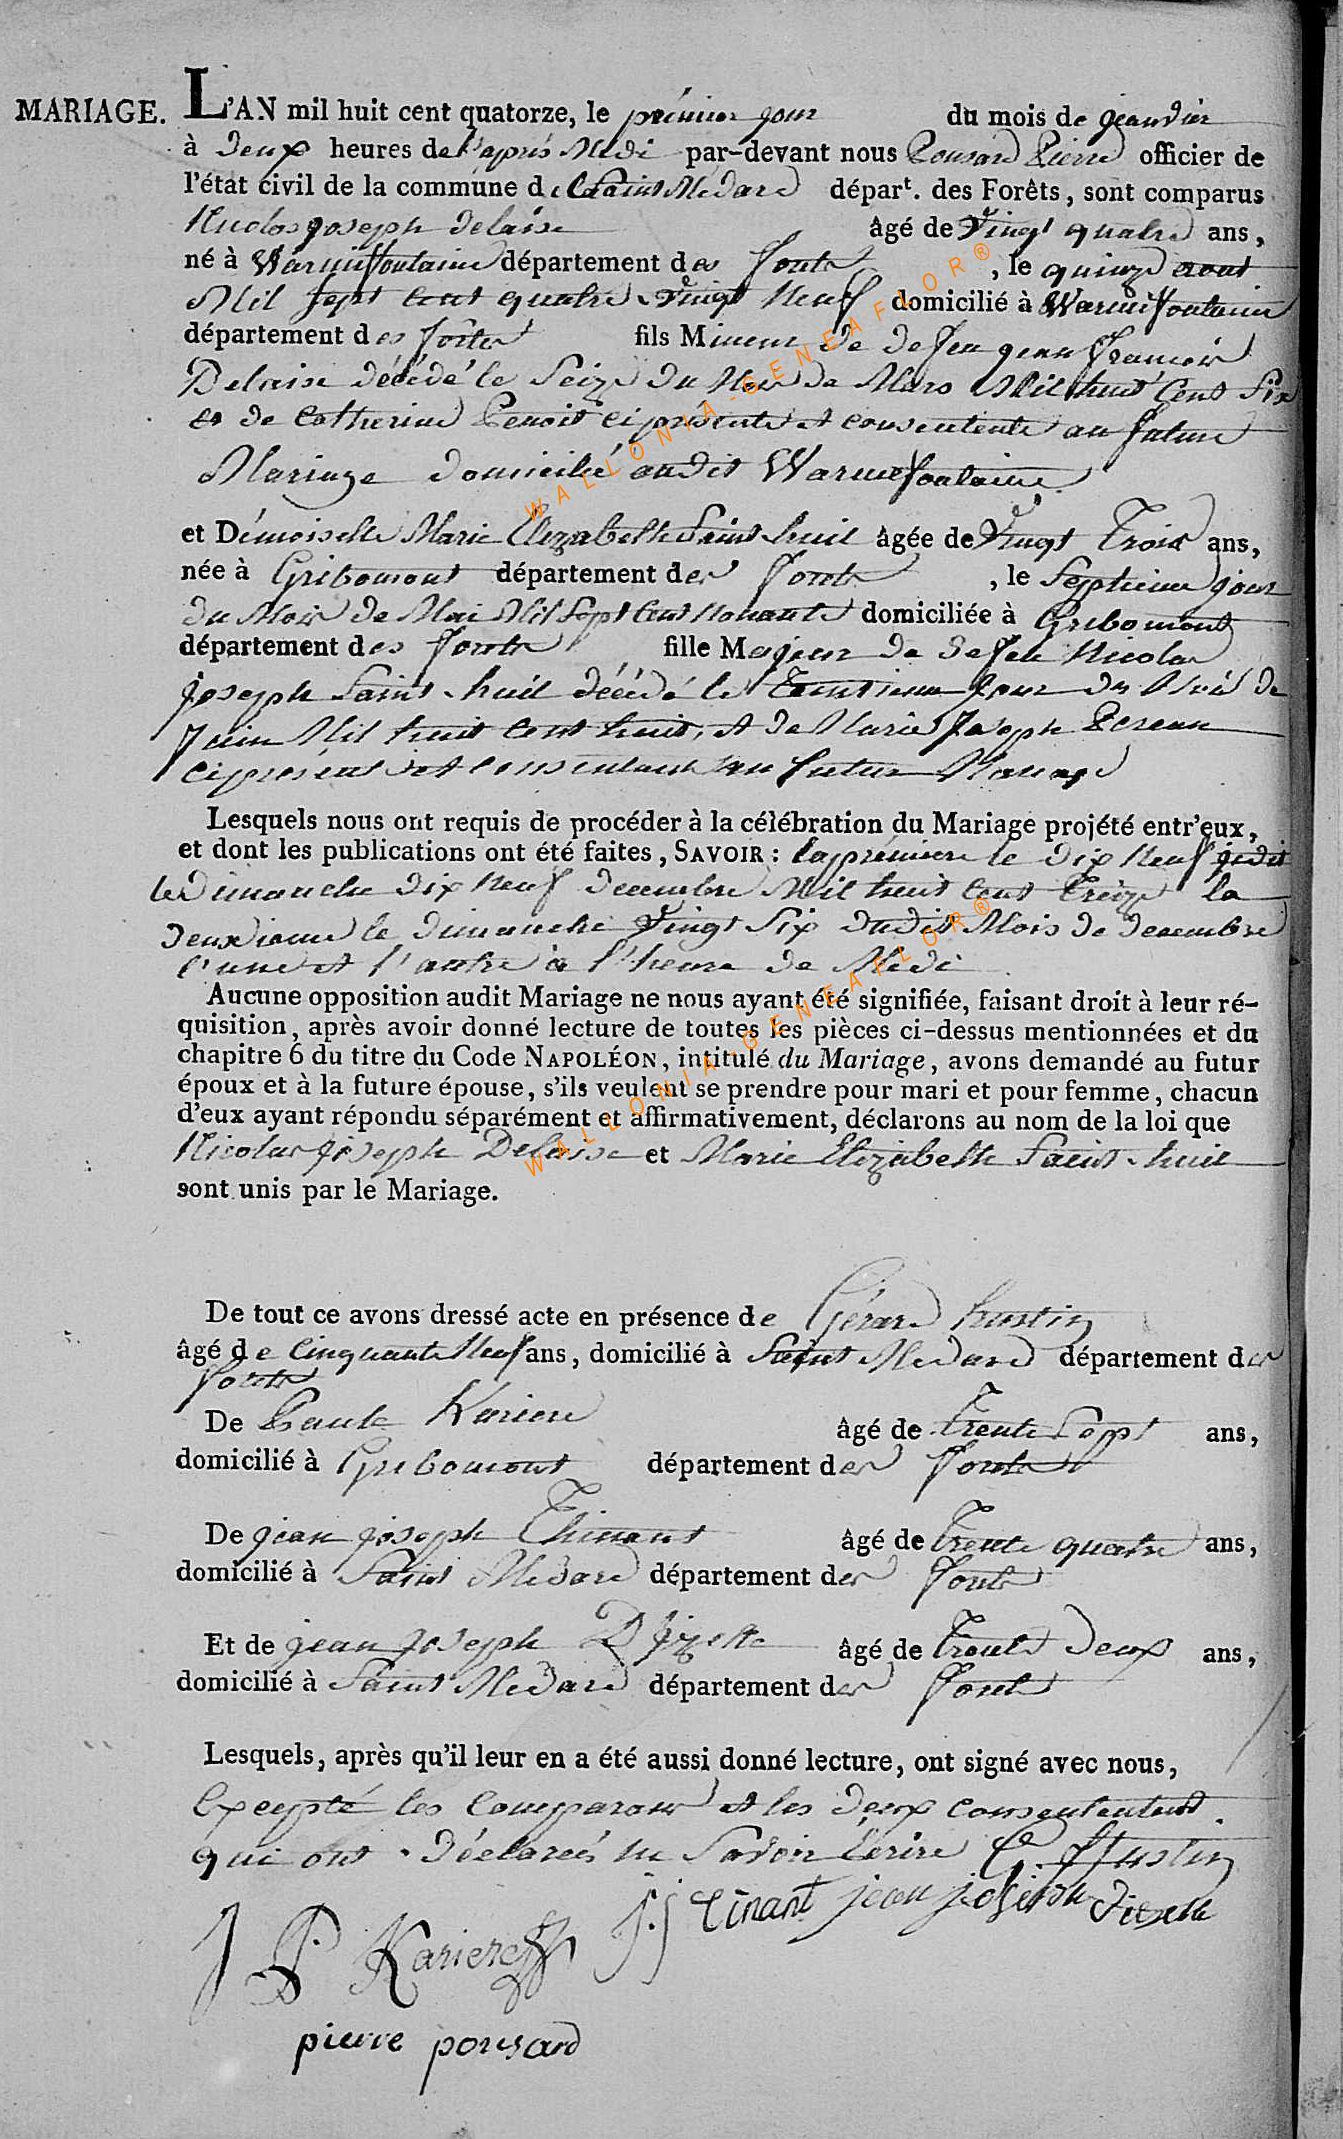 MARIAGE. L'AN mil huit cent quatorze, le prémier jour du mois de jeanvier
à deux heures de l'après Midi par-devant nous Ponsard Pierre officier de
l'état civil de la commune de Saint Médard départ. des Forêts, sont comparus
Nicolas joseph Delaisse âgé de Vingt quatre ans,
né à Warmiffontaine département des forêts, le quinze aout
Mil sept cent quatre Vingt Neuf domicilié à Warmiffontaine
département des forêts fils Mineur de defeu jean françois
Delaisse décédé le Seize du Mois de Mars Mil huit Cent Six
et de Catherine Benoit ci présente et consentente au future
Mariage domicilié audit Warmiffontaine
et Démoiselle Marie Elizabethe Saint huil âgée de Vingt Trois ans,
née à Gribomont département des forêts, le Septieme jour
du Mois de Mai Mil Sept Cent Nonante domiciliée à Gribomont
département des forêts fille Majeur de defeu Nicolas
joseph Saint huil décédé le jour du Mois de
Juin Mil huit Cent huit, et de Marie Joseph
ci présent et consentant au futur Mariage
Lesquels nous ont requis de procéder à la célébration du Mariage projété entr'eux,
et dont les publications ont été faites, SAVOIR : la prémiere le dix Neuf
le Dimanche dix Neuf decembre Mil huit Cent Treize la
deuxieme le dimanche Vingt Six dudit Mois de decembre
l'une et l'autre à l'heure de Midi
Aucune opposition audit Mariage ne nous ayant été signifiée, faisant droit à leur ré-
quisition, après avoir donné lecture de toutes les pièces ci-dessus mentionnées et du
chapitre 6 du titre du Code NAPOLÉON, intitulé du Mariage, avons demandé au futur
époux et à la future épouse, s'ils veulent se prendre pour mari et pour femme, chacun
d'eux ayant répondu séparément et affirmativement, déclarons au nom de la loi que
Nicolas joseph Delaisse et Marie Elizabethe Saint huil
sont unis par le Mariage.
De tout ce avons dressé acte en présence de Gérard hustin
âgé de Cinquante Neuf ans, domicilié à Saint Medard département des
forêts
De Paule Kariere âgé de Trente Sept ans,
domicilié à Gribomont département des forêts
De jean joseph Thinant âgé de Trente quatre ans,
domicilié à Saint Medard département des forêts
Et de jean joseph Dizette âgé de Trente deux ans,
domicilié à Saint Medard département des forêts
Lesquels, après qu'il leur en a été aussi donné lecture, ont signé avec nous,
Excepté les Comparans et les deux consentantent
qui ont déclarés ne Savoir écrire G. Hustin
J P. Kariere j.j Tinant jean joseph
pierre ponsard
WALLONIA-GENEAFLOR®
WALLONIA-GENEAFLOR®